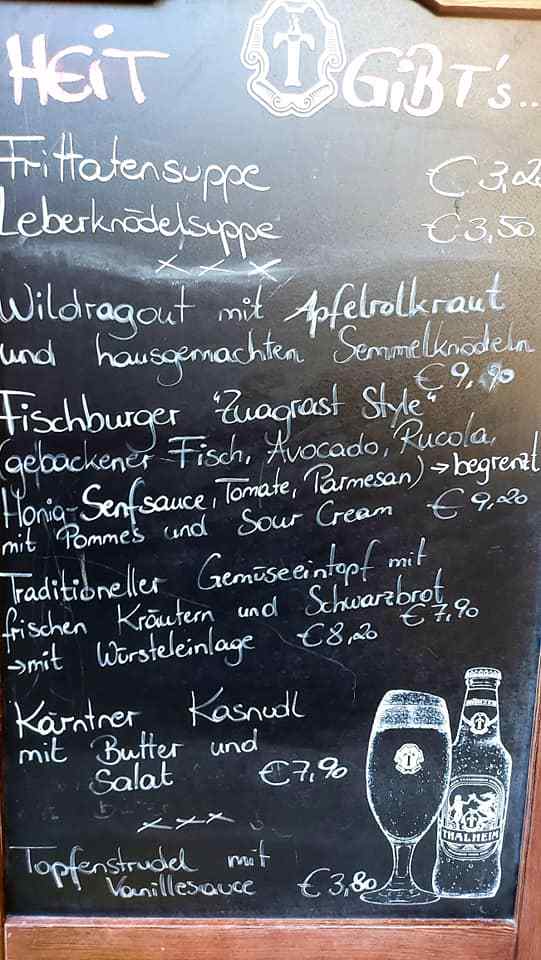 HEiT T GiBT's...
Frittatensuppe € 3,20
Leberknödelsuppe € 3,50
x x x
Wildragout mit Apfelrotkraut
und hausgemachten Semmelknödeln
€ 9,90
Fischburger "Zuagrast Style"
(gebackener Fisch, Avocado, Rucola,
Honig-Senfsauce, Tomate, Parmesan) → begrenzt
mit Pommes und Sour Cream € 9,20
Traditioneller Gemüseeintopf mit
frischen Kräutern und Schwarzbrot
€ 7,90
→ mit Würsteleinlage € 8,20
Kärntner Kasnudl
mit Butter und
Salat € 7,90
x x x
Topfenstrudel mit
Vanillesauce € 3,80
T
THALHEIM